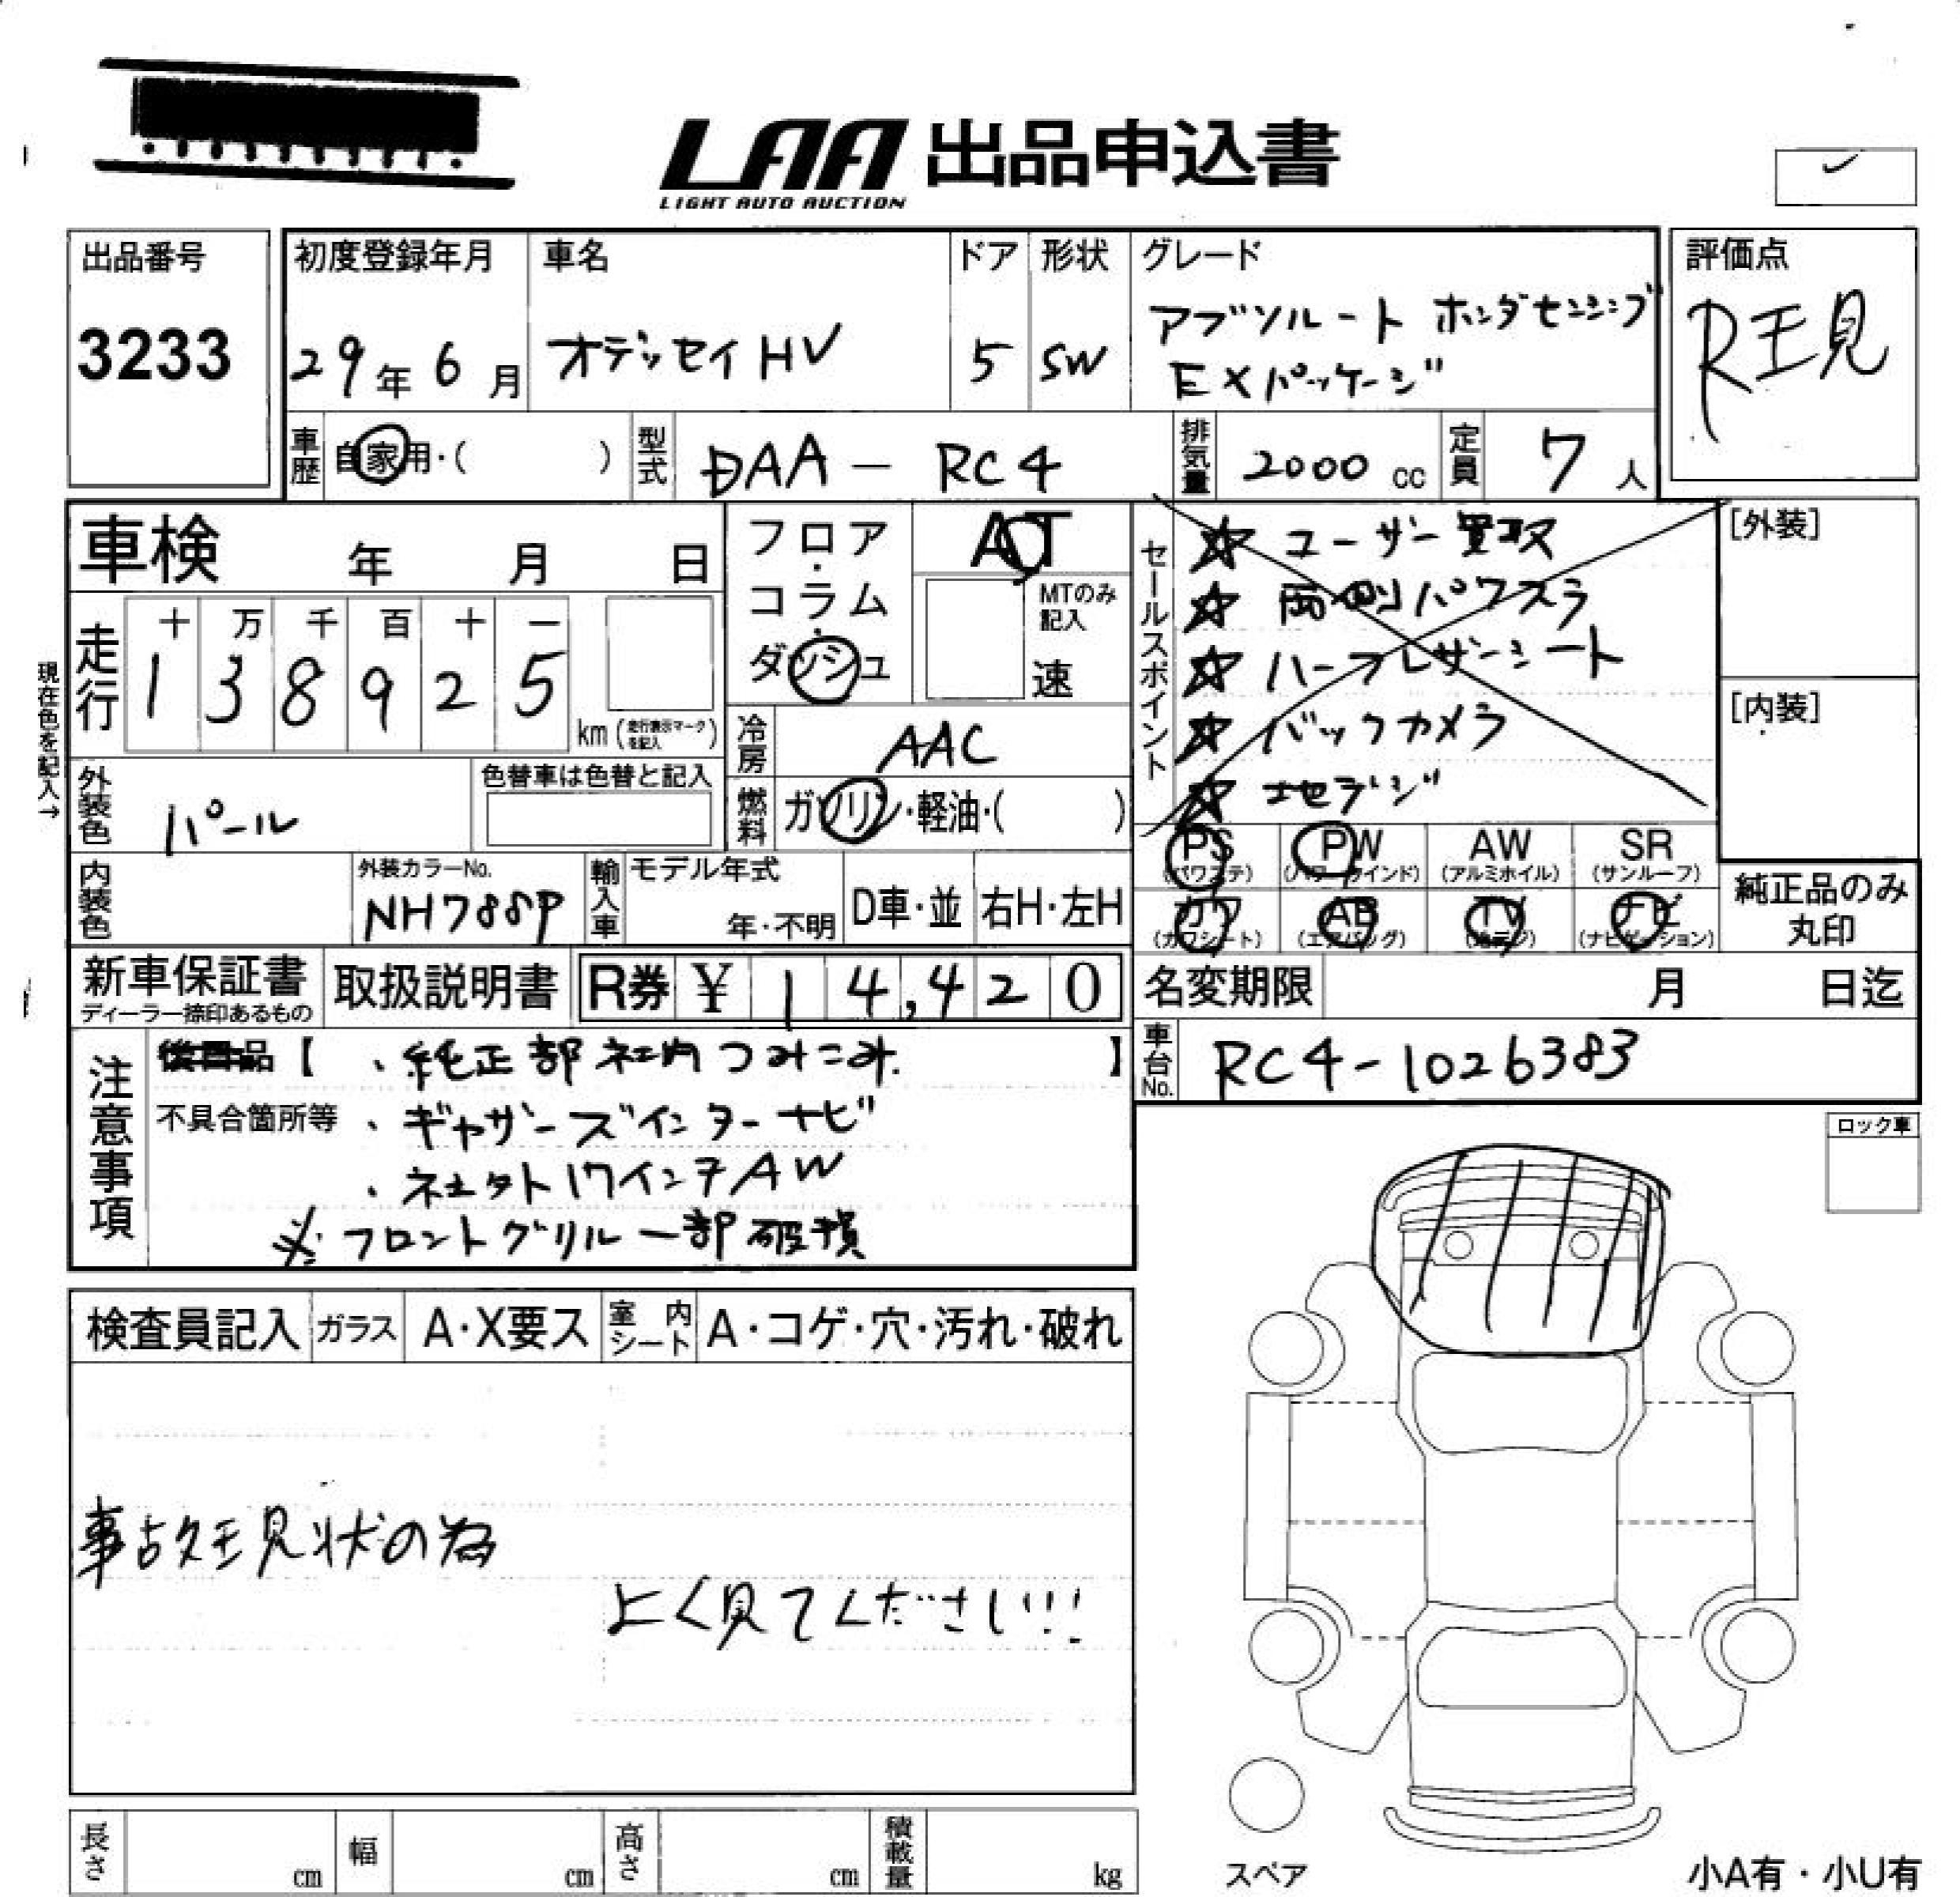 LAA 出品申込書
LIGHT AUTO AUCTION
出品番号
3233
初度登録年月
29年 6月
車名
オデッセイHV
ドア
5
形状
SW
グレード
アブソルート ホンダセンシング
EXパッケージ
評価点
R現
車歴
自家用・( )
型式
DAA - RC4
排気量
2000 cc
定員
7人
車検 年 月 日
現在色を記入→
走行
十 万 千 百 十 一
1 3 8 9 2 5
km (走行表示マークを記入)
フロア・コラム・ダッシュ
AT
MTのみ記入
速
冷房
AAC
燃料
ガソリン・軽油・( )
セールスポイント
☆ ユーザー買取
☆ 両側パワスラ
☆ ハーフレザーシート
☆ バックカメラ
☆ 地デジ
[外装]
[内装]
外装色
パール
色替車は色替と記入
内装色
外装カラーNo.
NH788P
輸入車
モデル年式
年・不明
D車・並
右H・左H
PS (パワステ)
PW (パワーウインド)
AW (アルミホイル)
SR (サンルーフ)
カワ (カワシート)
AB (エアバッグ)
TV (地デジ)
ナビ (ナビゲーション)
純正品のみ
丸印
新車保証書
ディーラー捺印あるもの
取扱説明書
R券 ¥ 14,420
名変期限 月 日迄
車台No.
RC4-1026383
注意事項
後日品【 ・純正部 社内つみこみ. 】
不具合箇所等 ・ギャザーズインターナビ
・社外17インチAW
※ フロントグリル一部破損
ロック車
検査員記入
ガラス
A・X要ス
室内シート
A・コゲ・穴・汚れ・破れ
事故現状の為
よく見てください!!!
長さ cm
幅 cm
高さ cm
積載量 kg
スペア
小A有・小U有